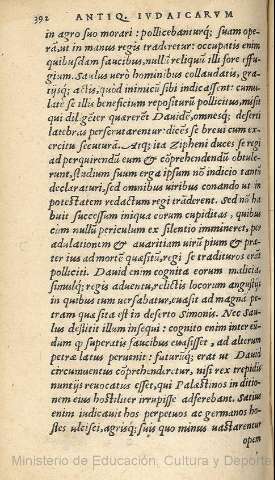 392 ANTIQ. IVDAICARVM
in agro suo morari: pollicebanturq; suam ope-
rã, ut in manus regis traderetur: occupatis enim
quibusdam faucibus, nullũ reliquũ illi fore effu-
gium. Saulus uerò hominibus collaudatis, gra-
tijsq; actis, quòd inimicũ sibi indicassent: cumu-
latè se illis beneficium repositurũ pollicitus, misit
qui diligẽter quærerẽt Dauidẽ, omnesq; deserti
latebras perscrutarentur: dicẽs se breui cum exer-
citu secuturũ. Atq; ita Zipheni duces se regi
ad perquirendũ eum & cõprehendendũ obtule-
runt, studium suum erga ipsum nõ indicio tantũ
declaraturi, sed omnibus uiribus conando ut in
potestatem redactum regi trãderent. Sed nõ ha
buit successum iniqua eorum cupiditas, quibus
cum nullũ periculum ex silentio immineret, per
adulationem & auaritiam uirũ pium & præ-
ter ius ad mortẽ quæsitũ, regi se tradituros erãt
polliciti. Dauid enim cognita eorum malicia,
simulq; regis aduentu, relictis locorum angustijs
in quibus tum uersabatur, euasit ad magnã pe-
tram quæ sita est in deserto Simonis. Nec Sau-
lus destitit illum insequi: cognito enim inter eũ-
dum q̃ superatis faucibus euasisset, ad alteram
petræ latus peruenit: futurũq; erat ut Dauid
circumuentus cõprehenderetur, nisi rex trepidis
nuntijs reuocatus esset, qui Palæstinos in ditio-
nem eius hostiliter irrupisse adferebant. Satius
enim iudicauit hos perpetuos ac germanos ho-
stes ulcisci, agrisq; suis quo minus uastarentur
opem
Ministerio de Educación, Cultura y Deporte